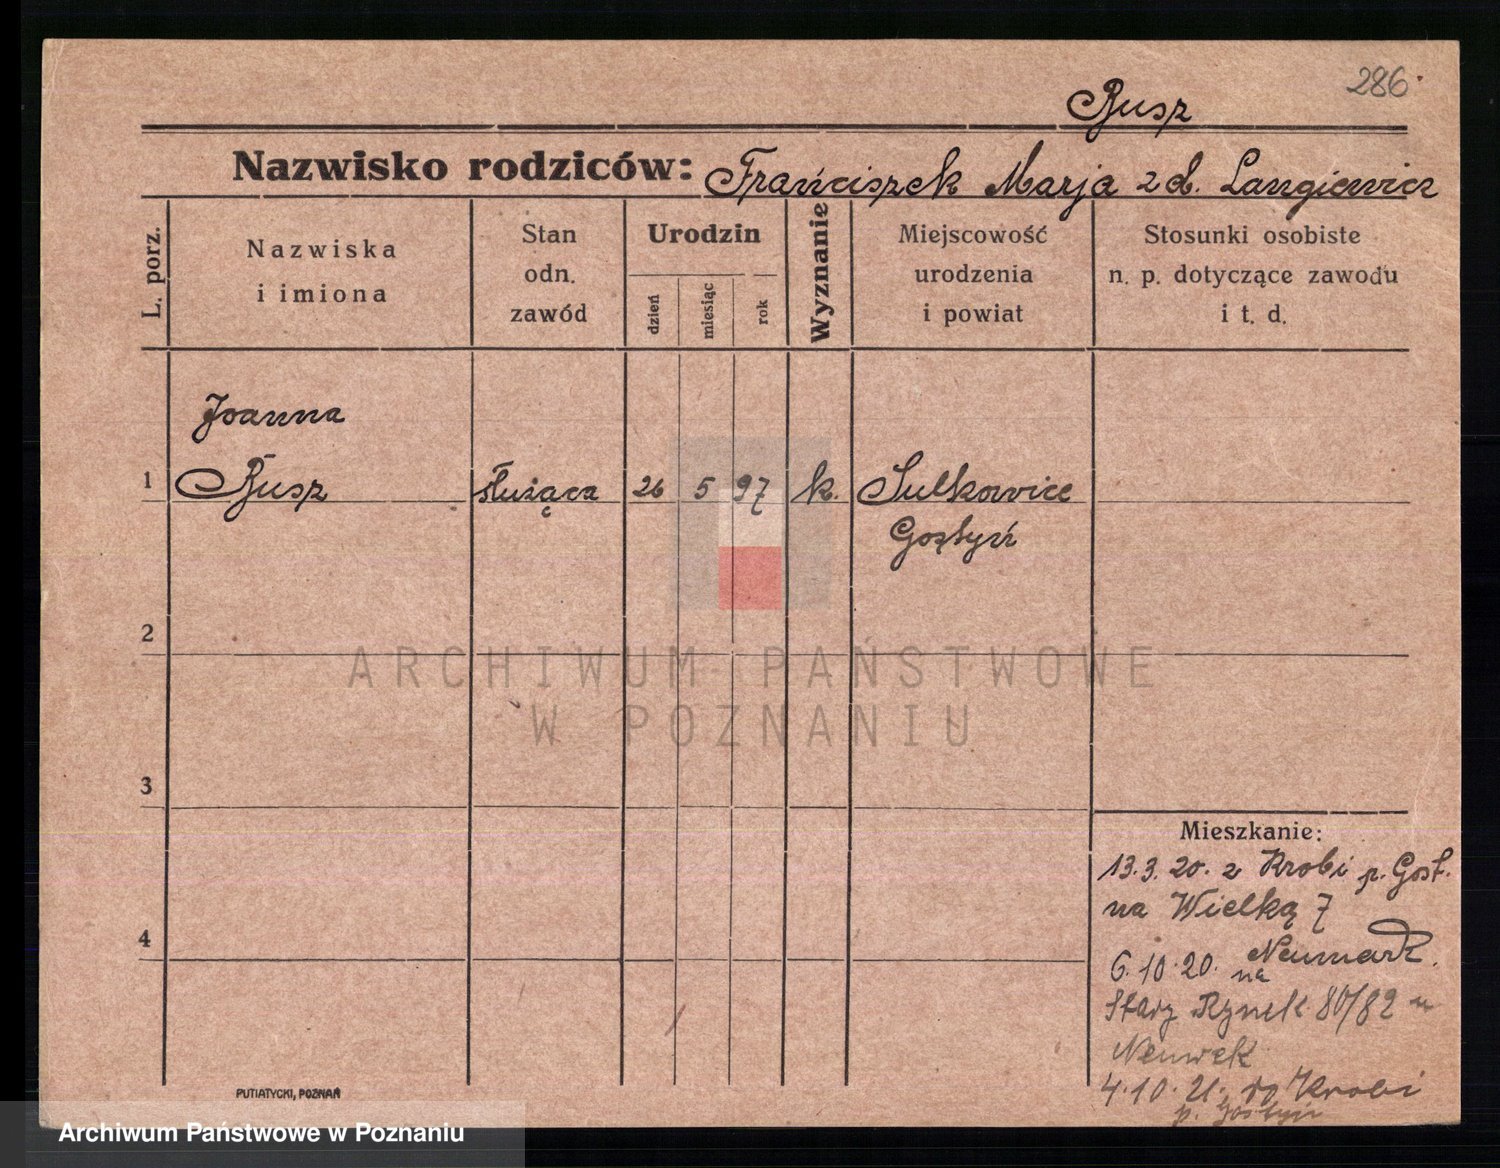 286
Rusz
Nazwisko rodziców: Franciszek Marja z d. Langiewicz
L. porz.
Nazwiska
i imiona
Stan
odn.
zawód
Urodzin
dzień
miesiąc
rok
Wyznanie
Miejscowość
urodzenia
i powiat
Stosunki osobiste
n. p. dotyczące zawodu
i t. d.
Joanna
1 Rusz służąca 26 5 97 k. Sulkowice
Gostyń
2
ARCHIWUM PAŃSTWOWE
W POZNANIU
3
Mieszkanie:
13.3.20. z Krobi p. Gost.
na Wielką 7
Neumark.
6.10.20. na
Stary Rynek 80/82 u
4.10.21. do Krobi
p. Gostyń
4
PUTIATYCKI, POZNAŃ
Archiwum Państwowe w Poznaniu